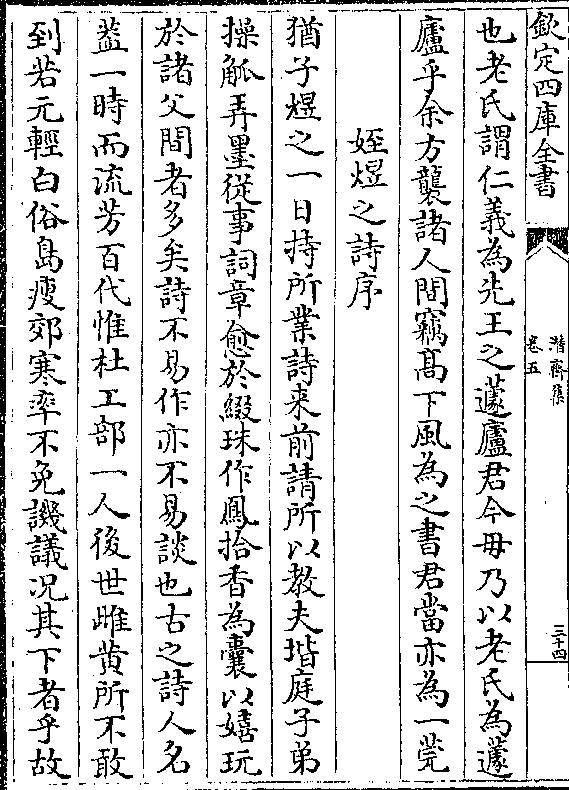 欽定四庫全書
潛齋集
卷五
三十四
也老氏謂仁義為先王之蘧廬君今毋乃以老氏為蘧
廬乎余方襲諸人間竊髙下風為之書君當亦為一莞
姪煜之詩序
猶子煜之一日持所業詩来前請所以教夫堦庭子弟
操觚弄墨從事詞章愈於綴珠作鳳拾香為囊以嬉玩
於諸父間者多矣詩不易作亦不易談也古之詩人名
葢一時而流芳百代惟杜工部一人後世雌黄所不敢
到若元輕白俗島瘦郊寒率不免譏議况其下者乎故